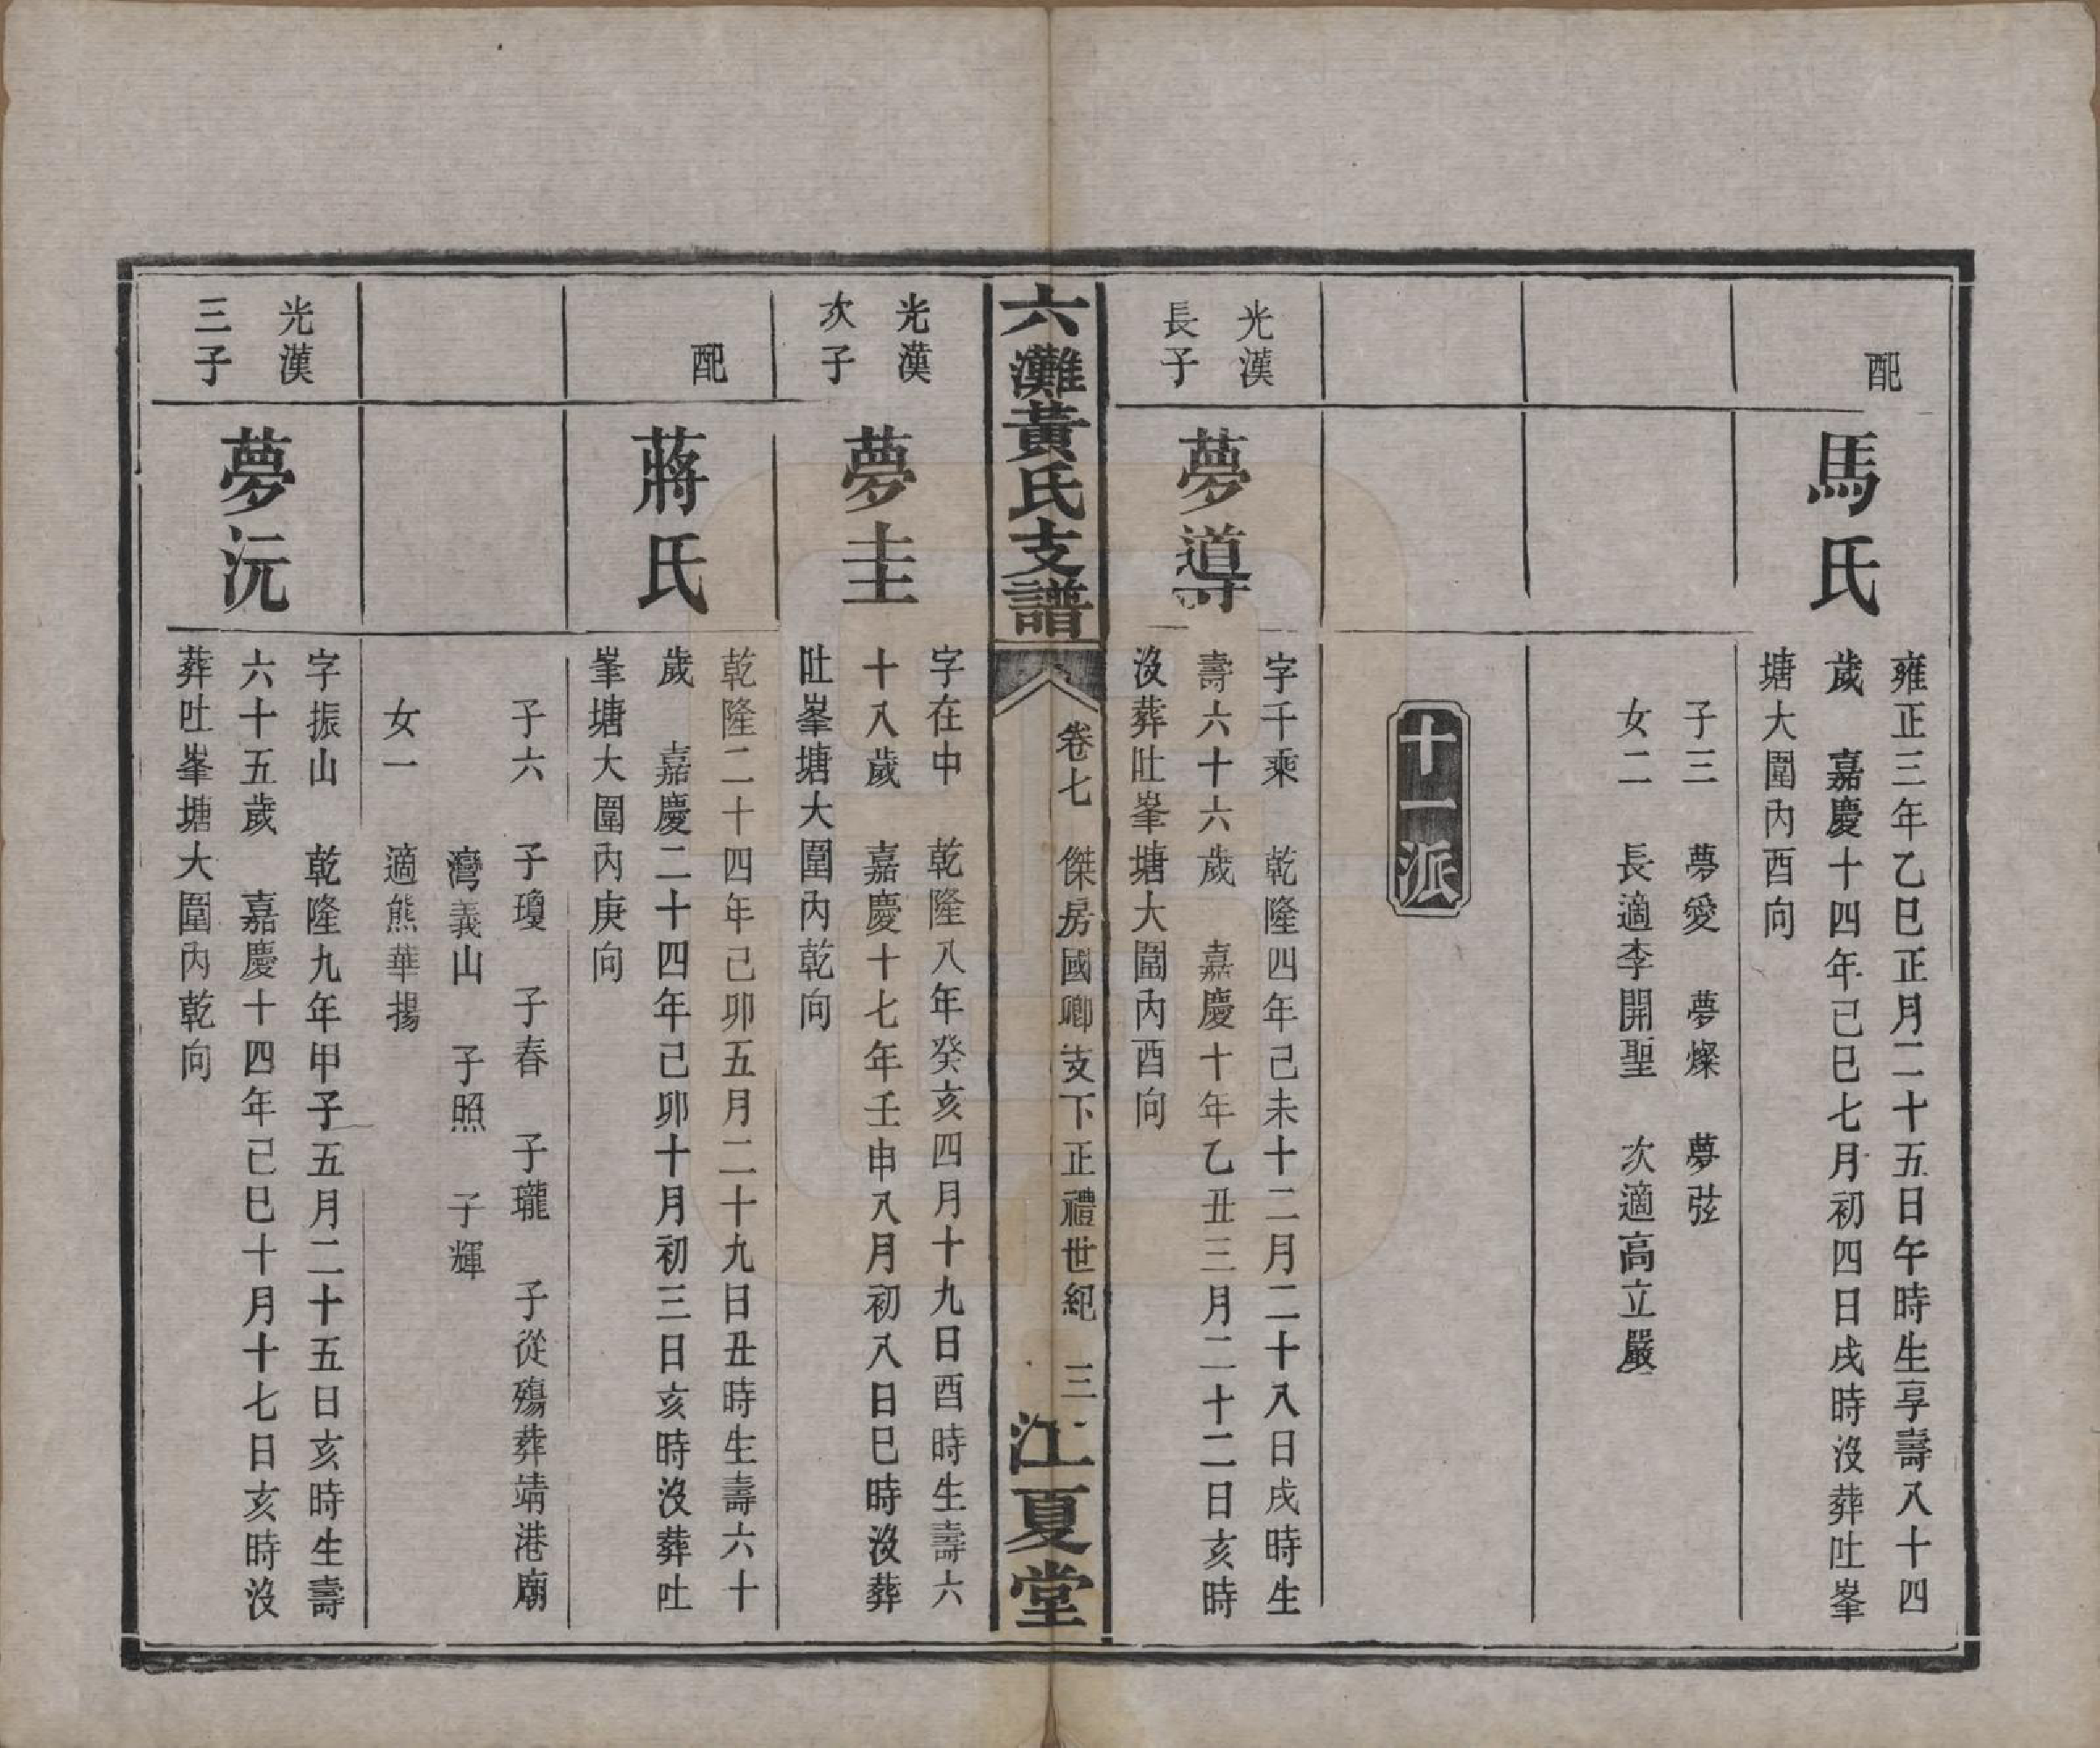 配
馬氏
雍正三年乙巳正月二十五日午時生享壽八十四
歲 嘉慶十四年己巳七月初四日戌時沒葬吐峯
塘大圍內酉向
子三 夢愛 夢燦 夢弦
女二 長適李開聖 次適高立嚴
十一派
光漢
長子
夢導
字千乘 乾隆四年己未十二月二十八日戌時生
壽六十六歲 嘉慶十年乙丑三月二十二日亥時
沒葬吐峯塘大圍內酉向
六灘黃氏支譜
卷七 傑房國卿支下正禮世紀 三
江夏堂
光漢
次子
夢圭
字在中 乾隆八年癸亥四月十九日酉時生壽六
十八歲 嘉慶十七年壬申八月初八日巳時沒葬
吐峯塘大圍內乾向
配
蔣氏
乾隆二十四年己卯五月二十九日丑時生壽六十
歲 嘉慶二十四年己卯十月初三日亥時沒葬吐
峯塘大圍內庚向
子六 子瓊 子春 子瓏 子從殤葬靖港廟
灣義山 子照 子輝
女一 適熊華揚
光漢
三子
夢沅
字振山 乾隆九年甲子五月二十五日亥時生壽
六十五歲 嘉慶十四年己巳十月十七日亥時沒
葬吐峯塘大圍內乾向